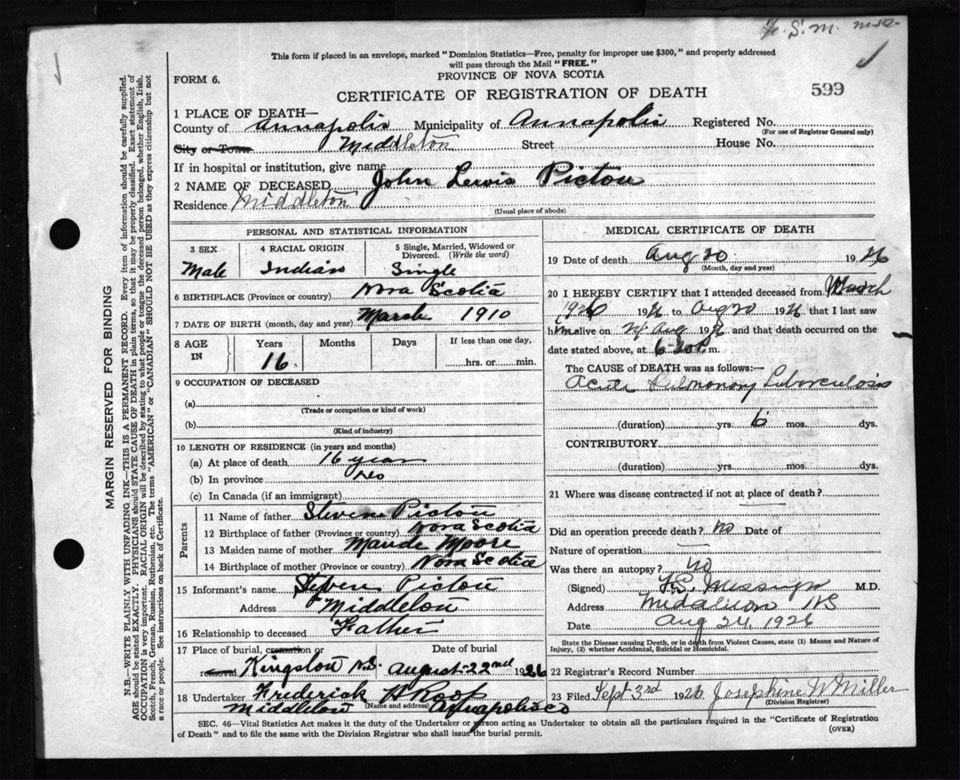 This form if placed in an envelope, marked "Dominion Statistics—Free, penalty for improper use $300," and properly addressed
will pass through the Mail "FREE."
PROVINCE OF NOVA SCOTIA
FORM 6.
CERTIFICATE OF REGISTRATION OF DEATH
599
1 PLACE OF DEATH—
County of Annapolis Municipality of Annapolis Registered No.
(For use of Registrar General only)
City or Town Middleton Street House No.
If in hospital or institution, give name
2 NAME OF DECEASED John Lewis Pictou
Residence Middleton
(Usual place of abode)
PERSONAL AND STATISTICAL INFORMATION
3 SEX 4 RACIAL ORIGIN 5 Single, Married, Widowed or Divorced. (Write the word)
Male Indian Single
6 BIRTHPLACE (Province or country) Nova Scotia
7 DATE OF BIRTH (month, day and year) March 1910
8 AGE IN Years Months Days If less than one day,
16 hrs. or min.
9 OCCUPATION OF DECEASED
(a)
(Trade or occupation or kind of work)
(b)
(Kind of industry)
10 LENGTH OF RESIDENCE (in years and months)
(a) At place of death 16 years
(b) In province yes
(c) In Canada (if an immigrant)
Parents
11 Name of father Steven Pictou
12 Birthplace of father (Province or country) Nova Scotia
13 Maiden name of mother Maude Moore
14 Birthplace of mother (Province or country) Nova Scotia
15 Informant's name Steven Pictou
Address Middleton
16 Relationship to deceased Father
17 Place of burial, cremation or removal Date of burial
Kingston N.S. August 22nd 1926
18 Undertaker Frederick W Roop
(Name and address)
Middleton Annapolis Co
MEDICAL CERTIFICATE OF DEATH
19 Date of death Aug 20 1926
(Month, day and year)
20 I HEREBY CERTIFY that I attended deceased from March
1926 1926 to Aug 20 1926 that I last saw
him alive on Aug 1926 and that death occurred on the
date stated above, at 6-30 P m.
The CAUSE of DEATH was as follows:—
Acute Pulmonary Tuberculosis
(duration) yrs. 6 mos. dys.
CONTRIBUTORY
(duration) yrs. mos. dys.
21 Where was disease contracted if not at place of death?
Did an operation precede death? no Date of
Nature of operation —
Was there an autopsy? no
(Signed) Messinger M.D.
Address Middleton NS
Date Aug 24 1926
State the Disease causing Death, or in death from Violent Causes, state (1) Means and Nature of
Injury, (2) whether Accidental, Suicidal or Homicidal.
22 Registrar's Record Number
23 Filed Sept 3rd 1926 Josephine W Miller
(Division Registrar)
SEC. 46—Vital Statistics Act makes it the duty of the Undertaker or person acting as Undertaker to obtain all the particulars required in the "Certificate of Registration
of Death" and to file the same with the Division Registrar who shall issue the burial permit.
(OVER)
MARGIN RESERVED FOR BINDING
N.B.—WRITE PLAINLY WITH UNFADING INK—THIS IS A PERMANENT RECORD. Every item of information should be carefully supplied.
AGE should be stated EXACTLY. PHYSICIANS should STATE CAUSE OF DEATH in plain terms, so that it may be properly classified. Exact statement of
OCCUPATION is very important. RACIAL ORIGIN will be described by stating to what people or tongue the deceased person belonged, whether English, Irish,
Scotch, French, German, Russian, Ruthenian, etc. The terms "AMERICAN" or "CANADIAN" SHOULD NOT BE USED as they express citizenship but not
a race or people. See instructions on back of Certificate.